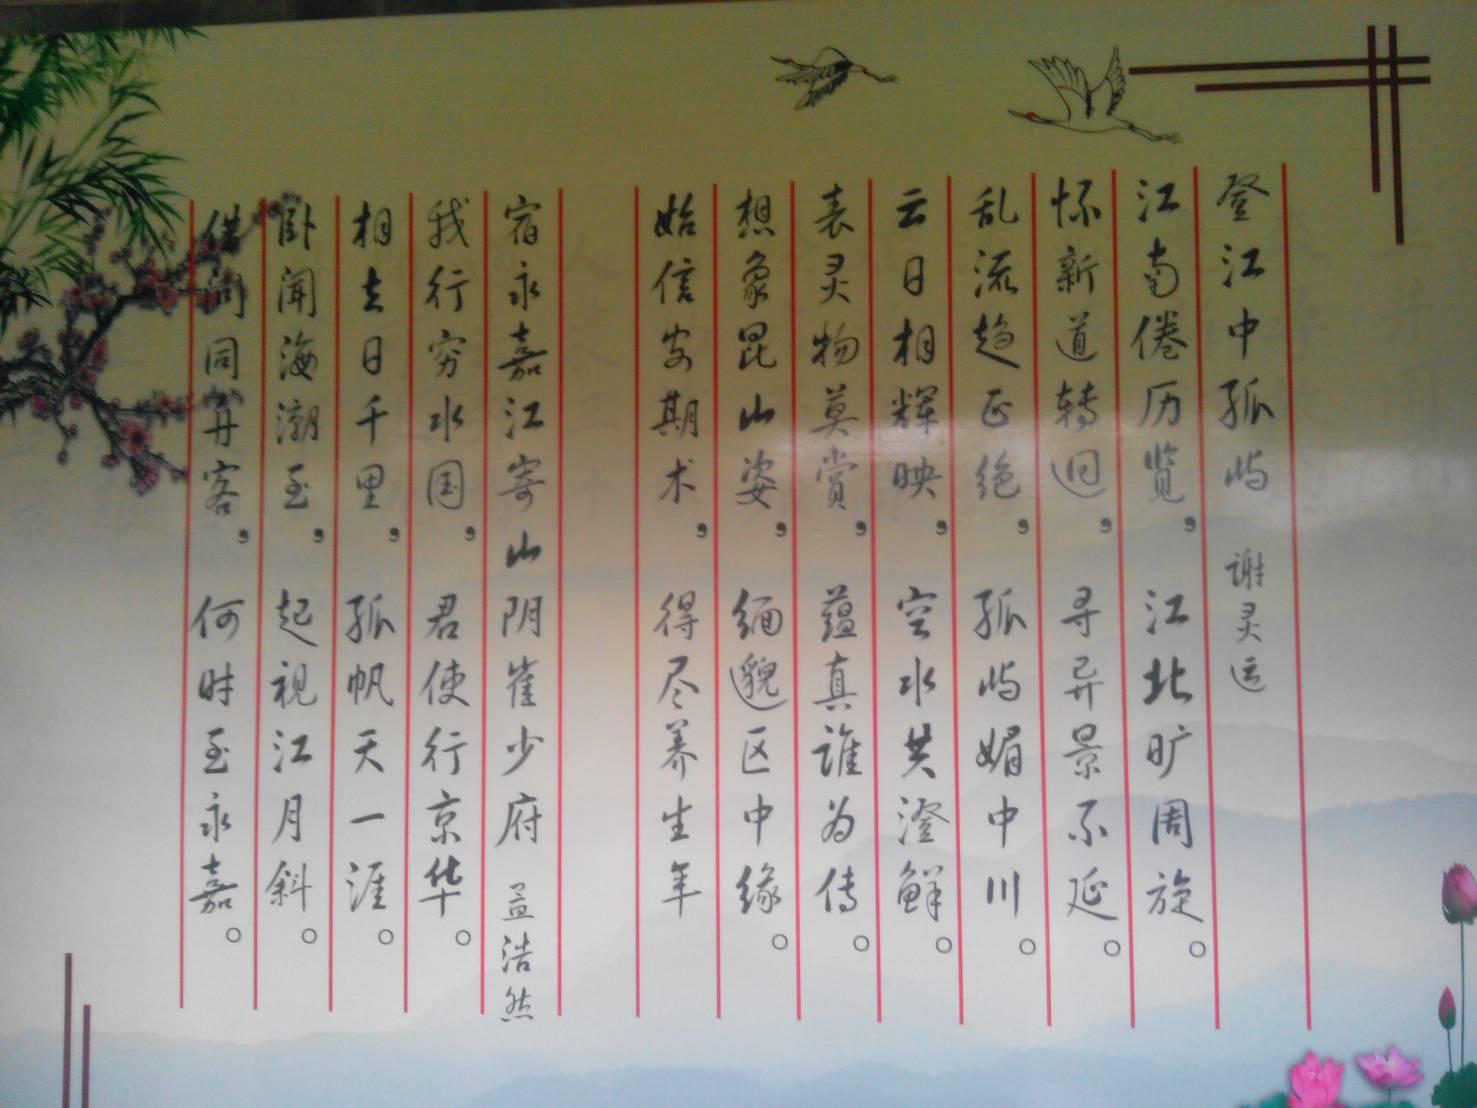 登江中孤屿 谢灵运
江南倦历览，江北旷周旋。
怀新道转迥，寻异景不延。
乱流趋正绝，孤屿媚中川。
云日相辉映，空水共澄鲜。
表灵物莫赏，蕴真谁为传。
想象昆山姿，缅邈区中缘。
始信安期术，得尽养生年
宿永嘉江寄山阴崔少府 孟浩然
我行穷水国，君使行京华。
相去日千里，孤帆天一涯。
卧闻海潮至，起视江月斜。
借问同舟客，何时至永嘉。